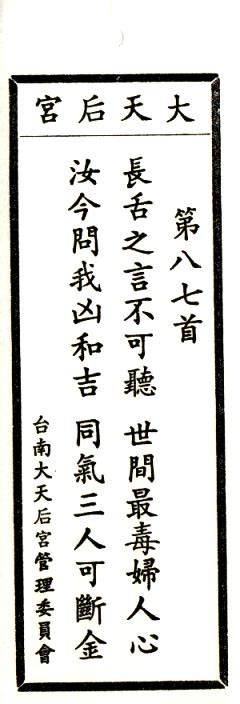 大天后宮
第八七首
長舌之言不可聽　世間最毒婦人心
汝今問我凶和吉　同氣三人可斷金
台南大天后宮管理委員會